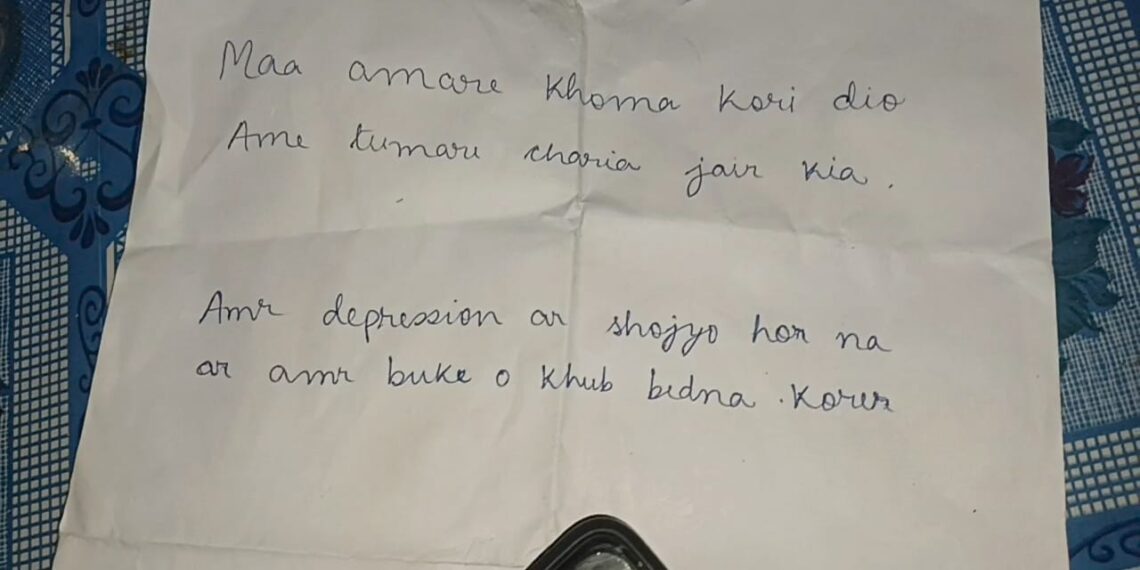 Maa amare khoma kori dio
Ame tumare charia jair kia.
Amr depression ar shojyo hor na
ar amr buke o khub bedna korer